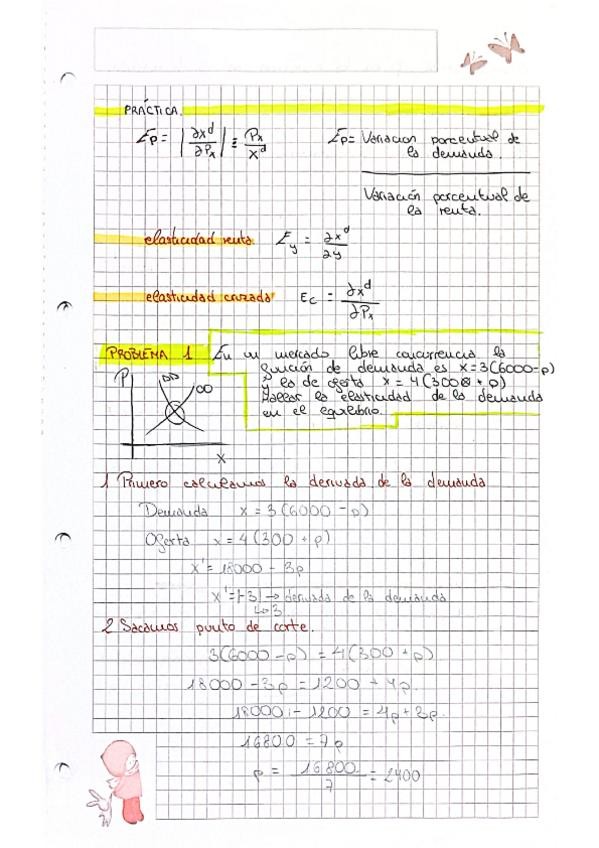 PRÁCTICA.
Ep = |∂x^d / ∂Px| = Px / x^d
Ep = Variación porcentual de
la demanda.
Variación porcentual de
la renta.
elasticidad renta Ey = ∂x^d / ∂y
elasticidad cruzada Ec = ∂x^d / ∂Px
PROBLEMA 1 En un mercado libre concurrencia la
función de demanda es x = 3(6000 - p)
y la de oferta x = 4(300 + p)
Hallar la elasticidad de la demanda
en el equilibrio.
P
DD
OO
X
1 Primero calculamos la derivada de la demanda
Demanda x = 3(6000 - p)
Oferta x = 4(300 + p)
x' = 18000 - 3p
x' = |-3| → derivada de la demanda
↳ 3
2 Sacamos punto de corte.
3(6000 - p) = 4(300 + p)
18000 - 3p = 1200 + 4p.
18000 - 1200 = 4p + 3p.
16800 = 7p
p = 16800 / 7 = 2400